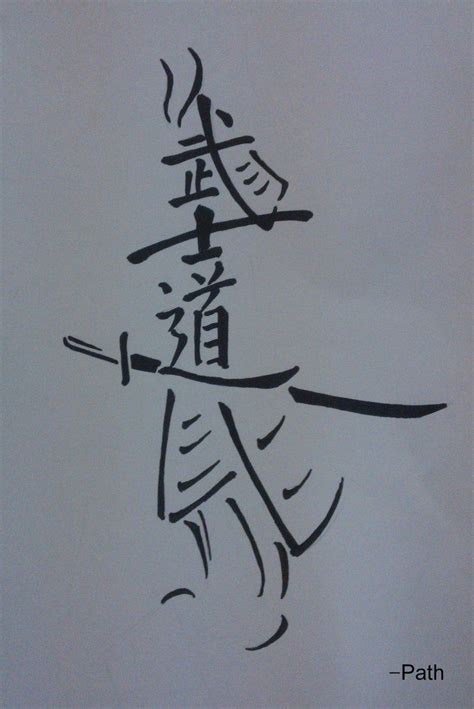 武
士
道
–Path